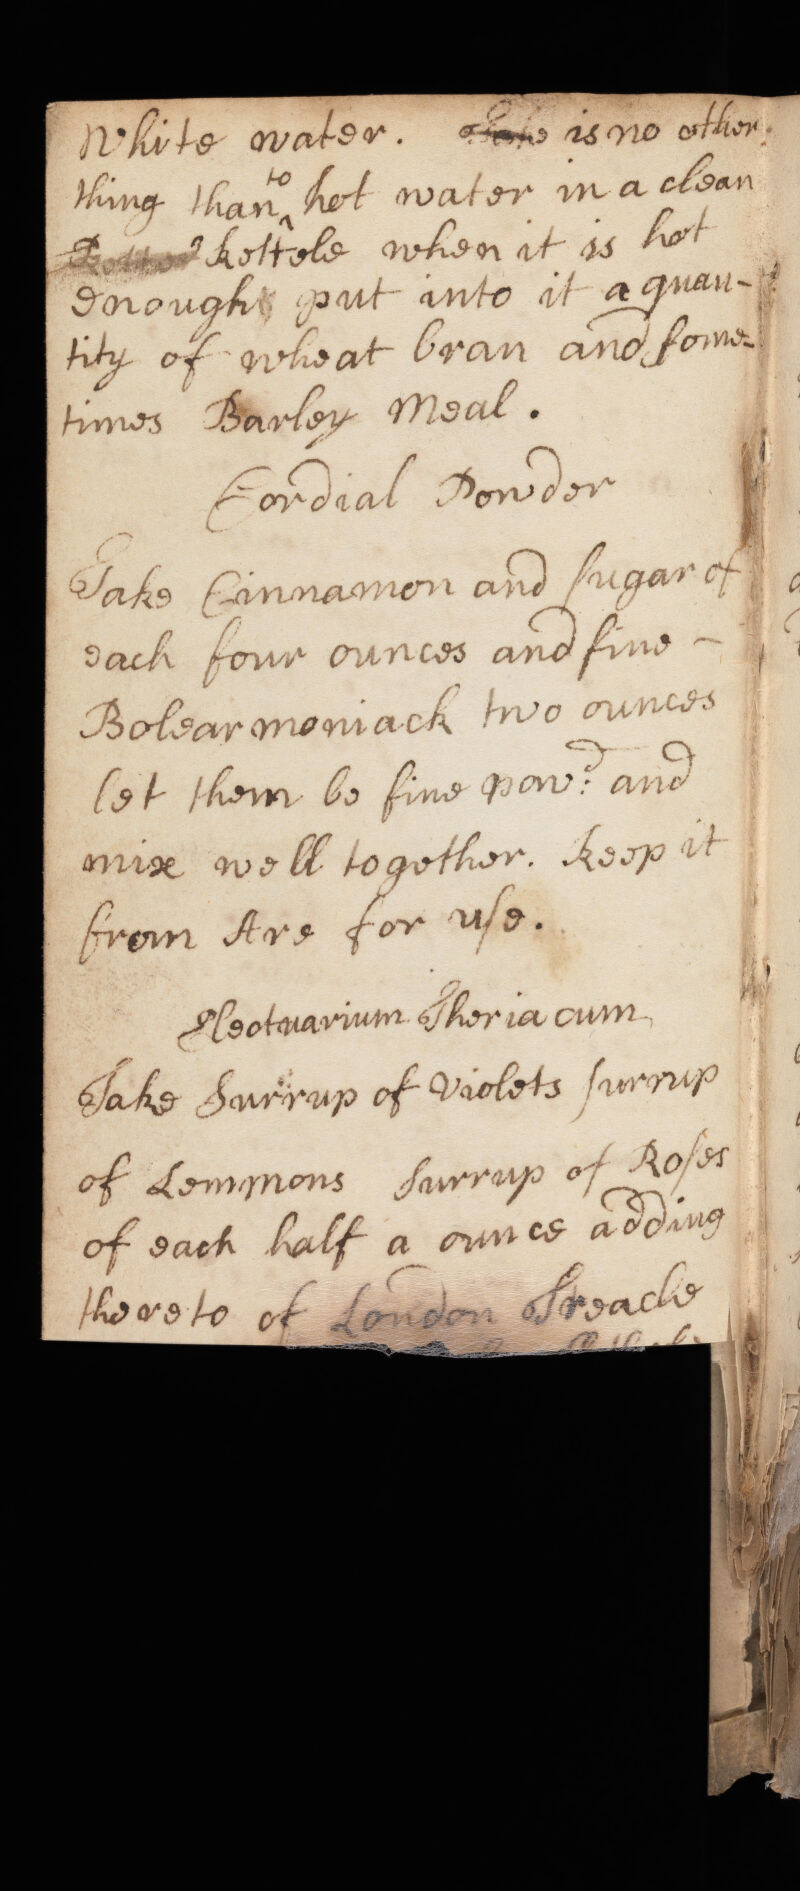 White water. is no other
thing than to hot water in a clean
kettele when it is hot
enough put into it a quan-
tity of wheat bran and some-
times Barley Meal.
Cordial Powder
Take Cinnamon and sugar of
each four ounces and fine -
Bolearmoniack two ounces
let them be fine powd: and
mix well together. Keep it
from Are for use.
Electuarium Theriacum
Take Surrup of Violets surrup
of Lemmons Surrup of Roses
of each half a ounce adding
thereto of London Treacle